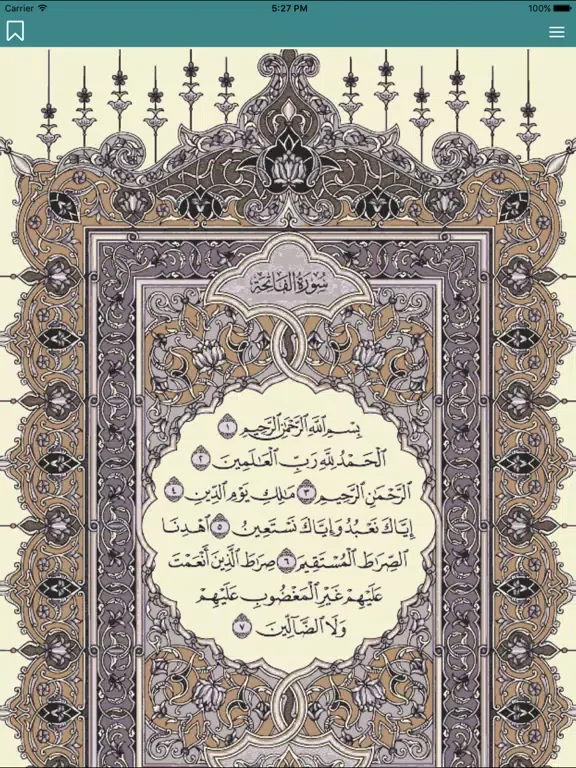 Carrier 5:27 PM 100%
سُورَةُ الفَاتِحَةِ
بِسْمِ ٱللَّهِ ٱلرَّحْمَٰنِ ٱلرَّحِيمِ ١
ٱلْحَمْدُ لِلَّهِ رَبِّ ٱلْعَٰلَمِينَ ٢
ٱلرَّحْمَٰنِ ٱلرَّحِيمِ ٣ مَٰلِكِ يَوْمِ ٱلدِّينِ ٤
إِيَّاكَ نَعْبُدُ وَإِيَّاكَ نَسْتَعِينُ ٥ ٱهْدِنَا
ٱلصِّرَٰطَ ٱلْمُسْتَقِيمَ ٦ صِرَٰطَ ٱلَّذِينَ أَنْعَمْتَ
عَلَيْهِمْ غَيْرِ ٱلْمَغْضُوبِ عَلَيْهِمْ
وَلَا ٱلضَّآلِّينَ ٧